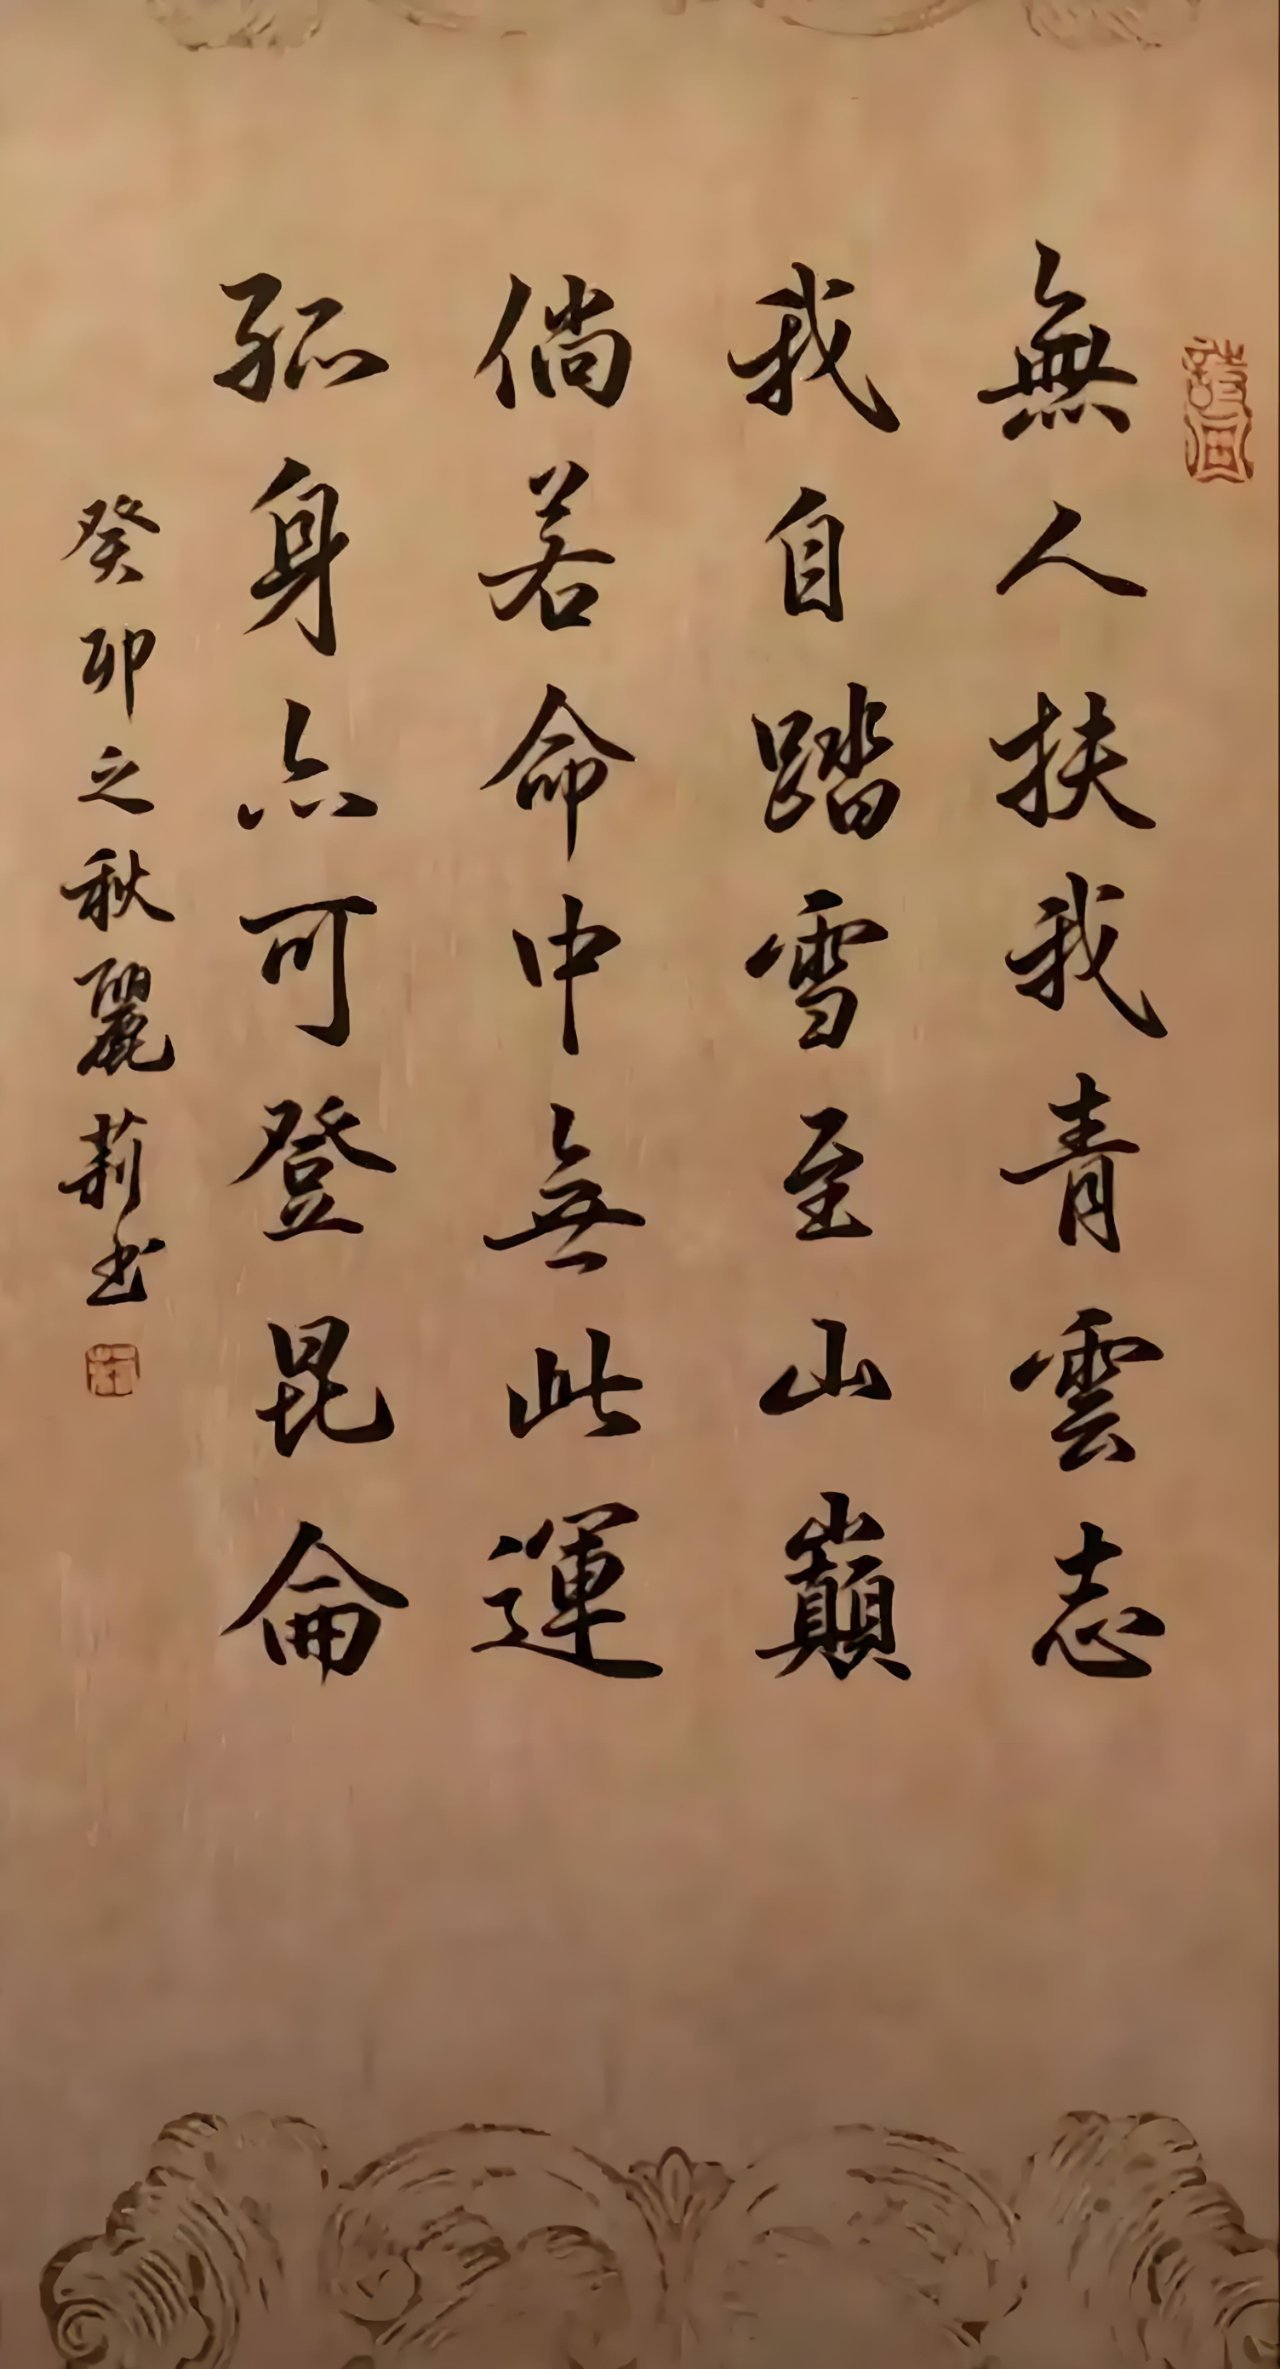 無人扶我青雲志
我自踏雪至山巔
倘若命中無此運
孤身亦可登昆侖
癸卯之秋麗莉书